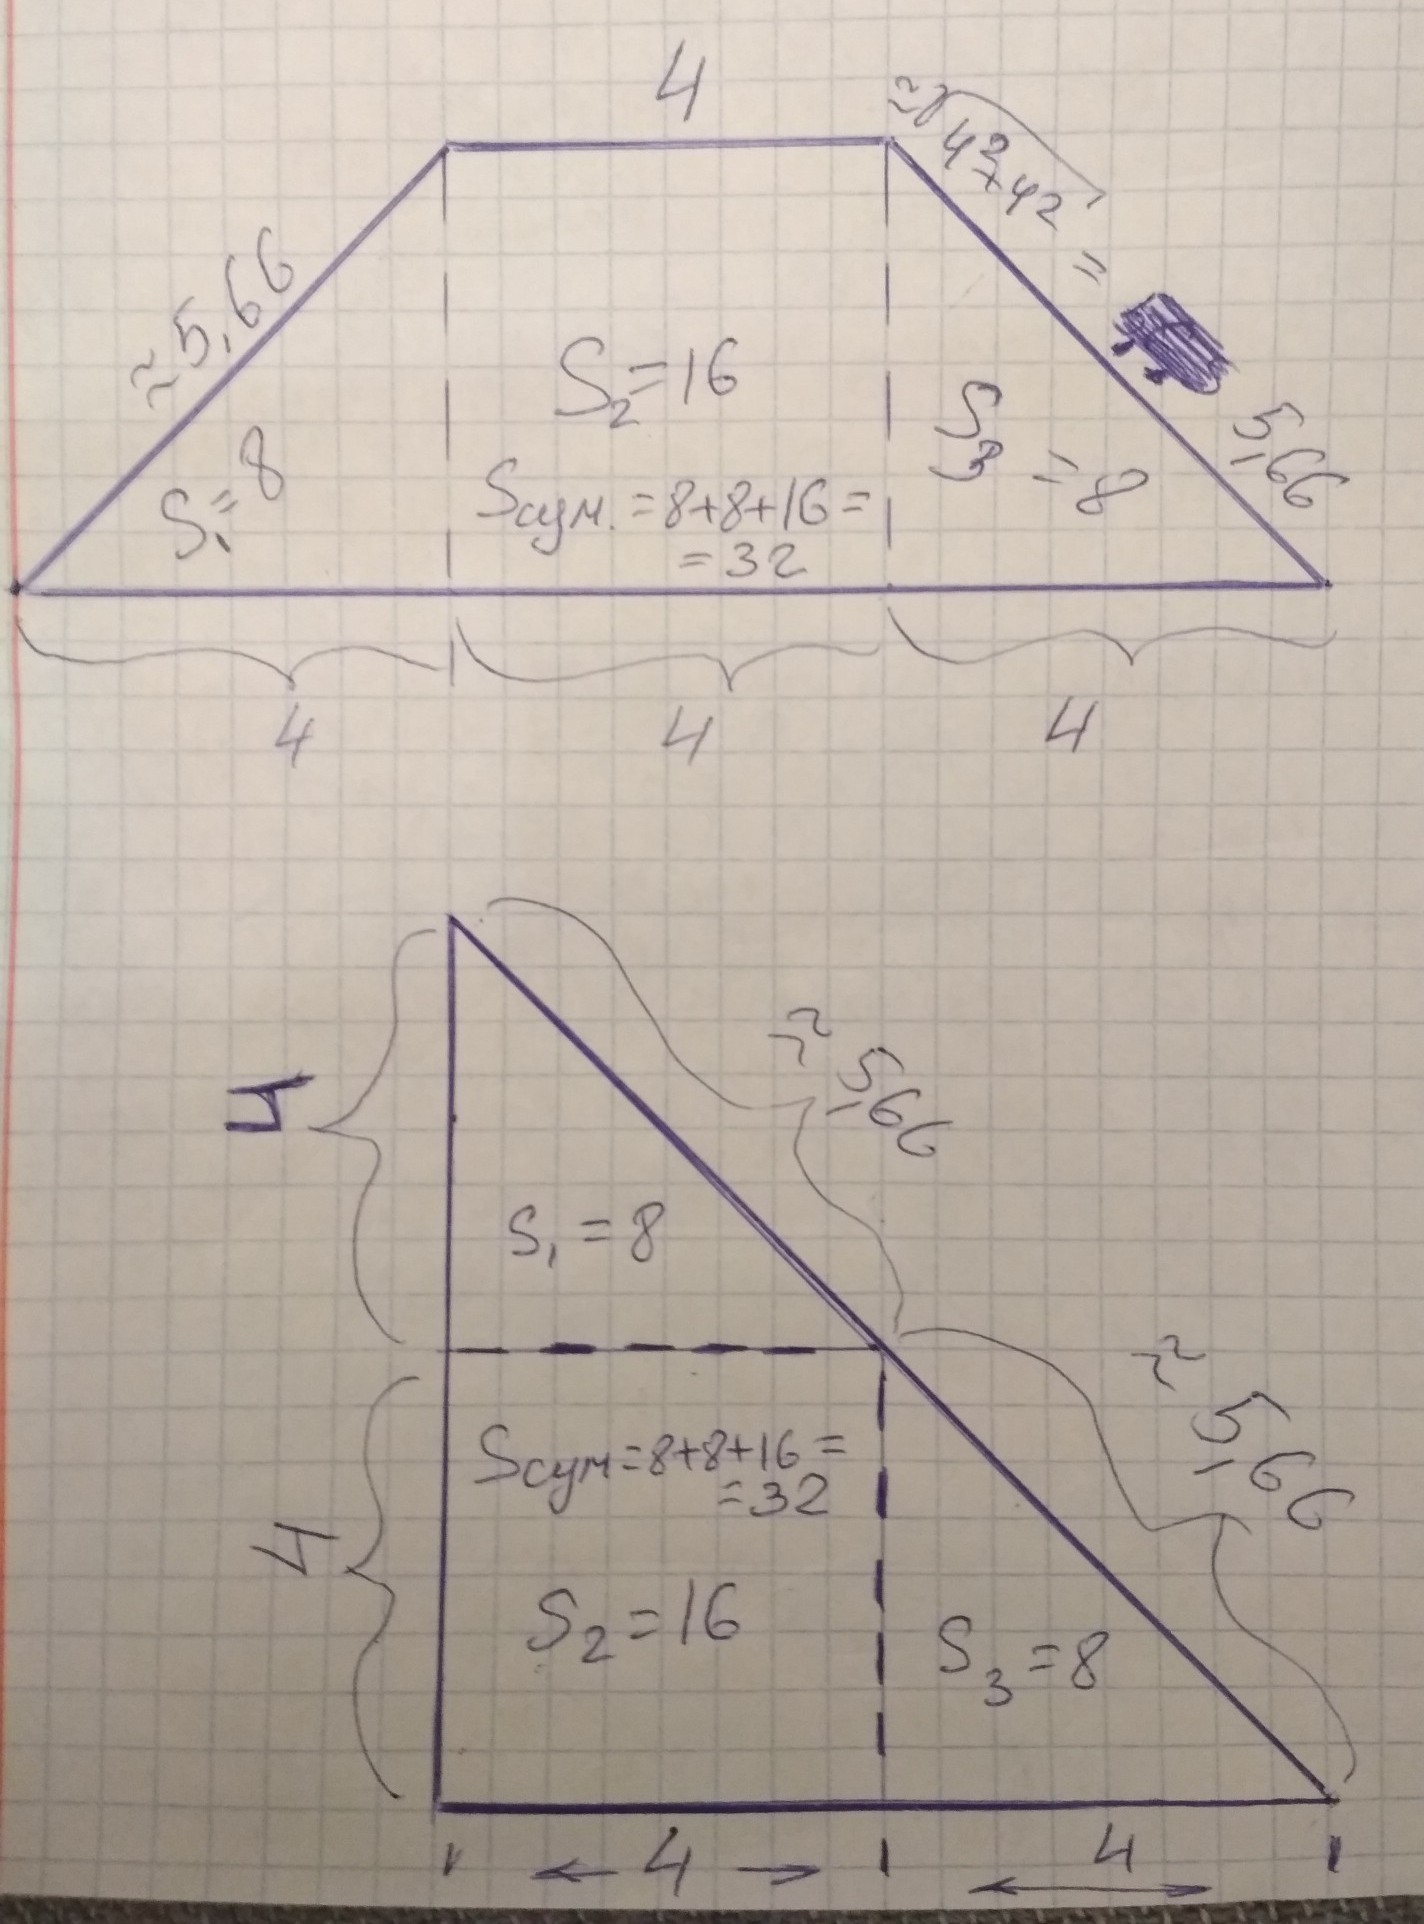 4
≈√4²+4² = 5,66
≈5,66
S₂=16
S₁=8
S₃=8
Sсум.=8+8+16=
=32
4 4 4
≈5,66
4
S₁=8
≈5,66
Sсум=8+8+16=
=32
4
S₂=16
S₃=8
4 4